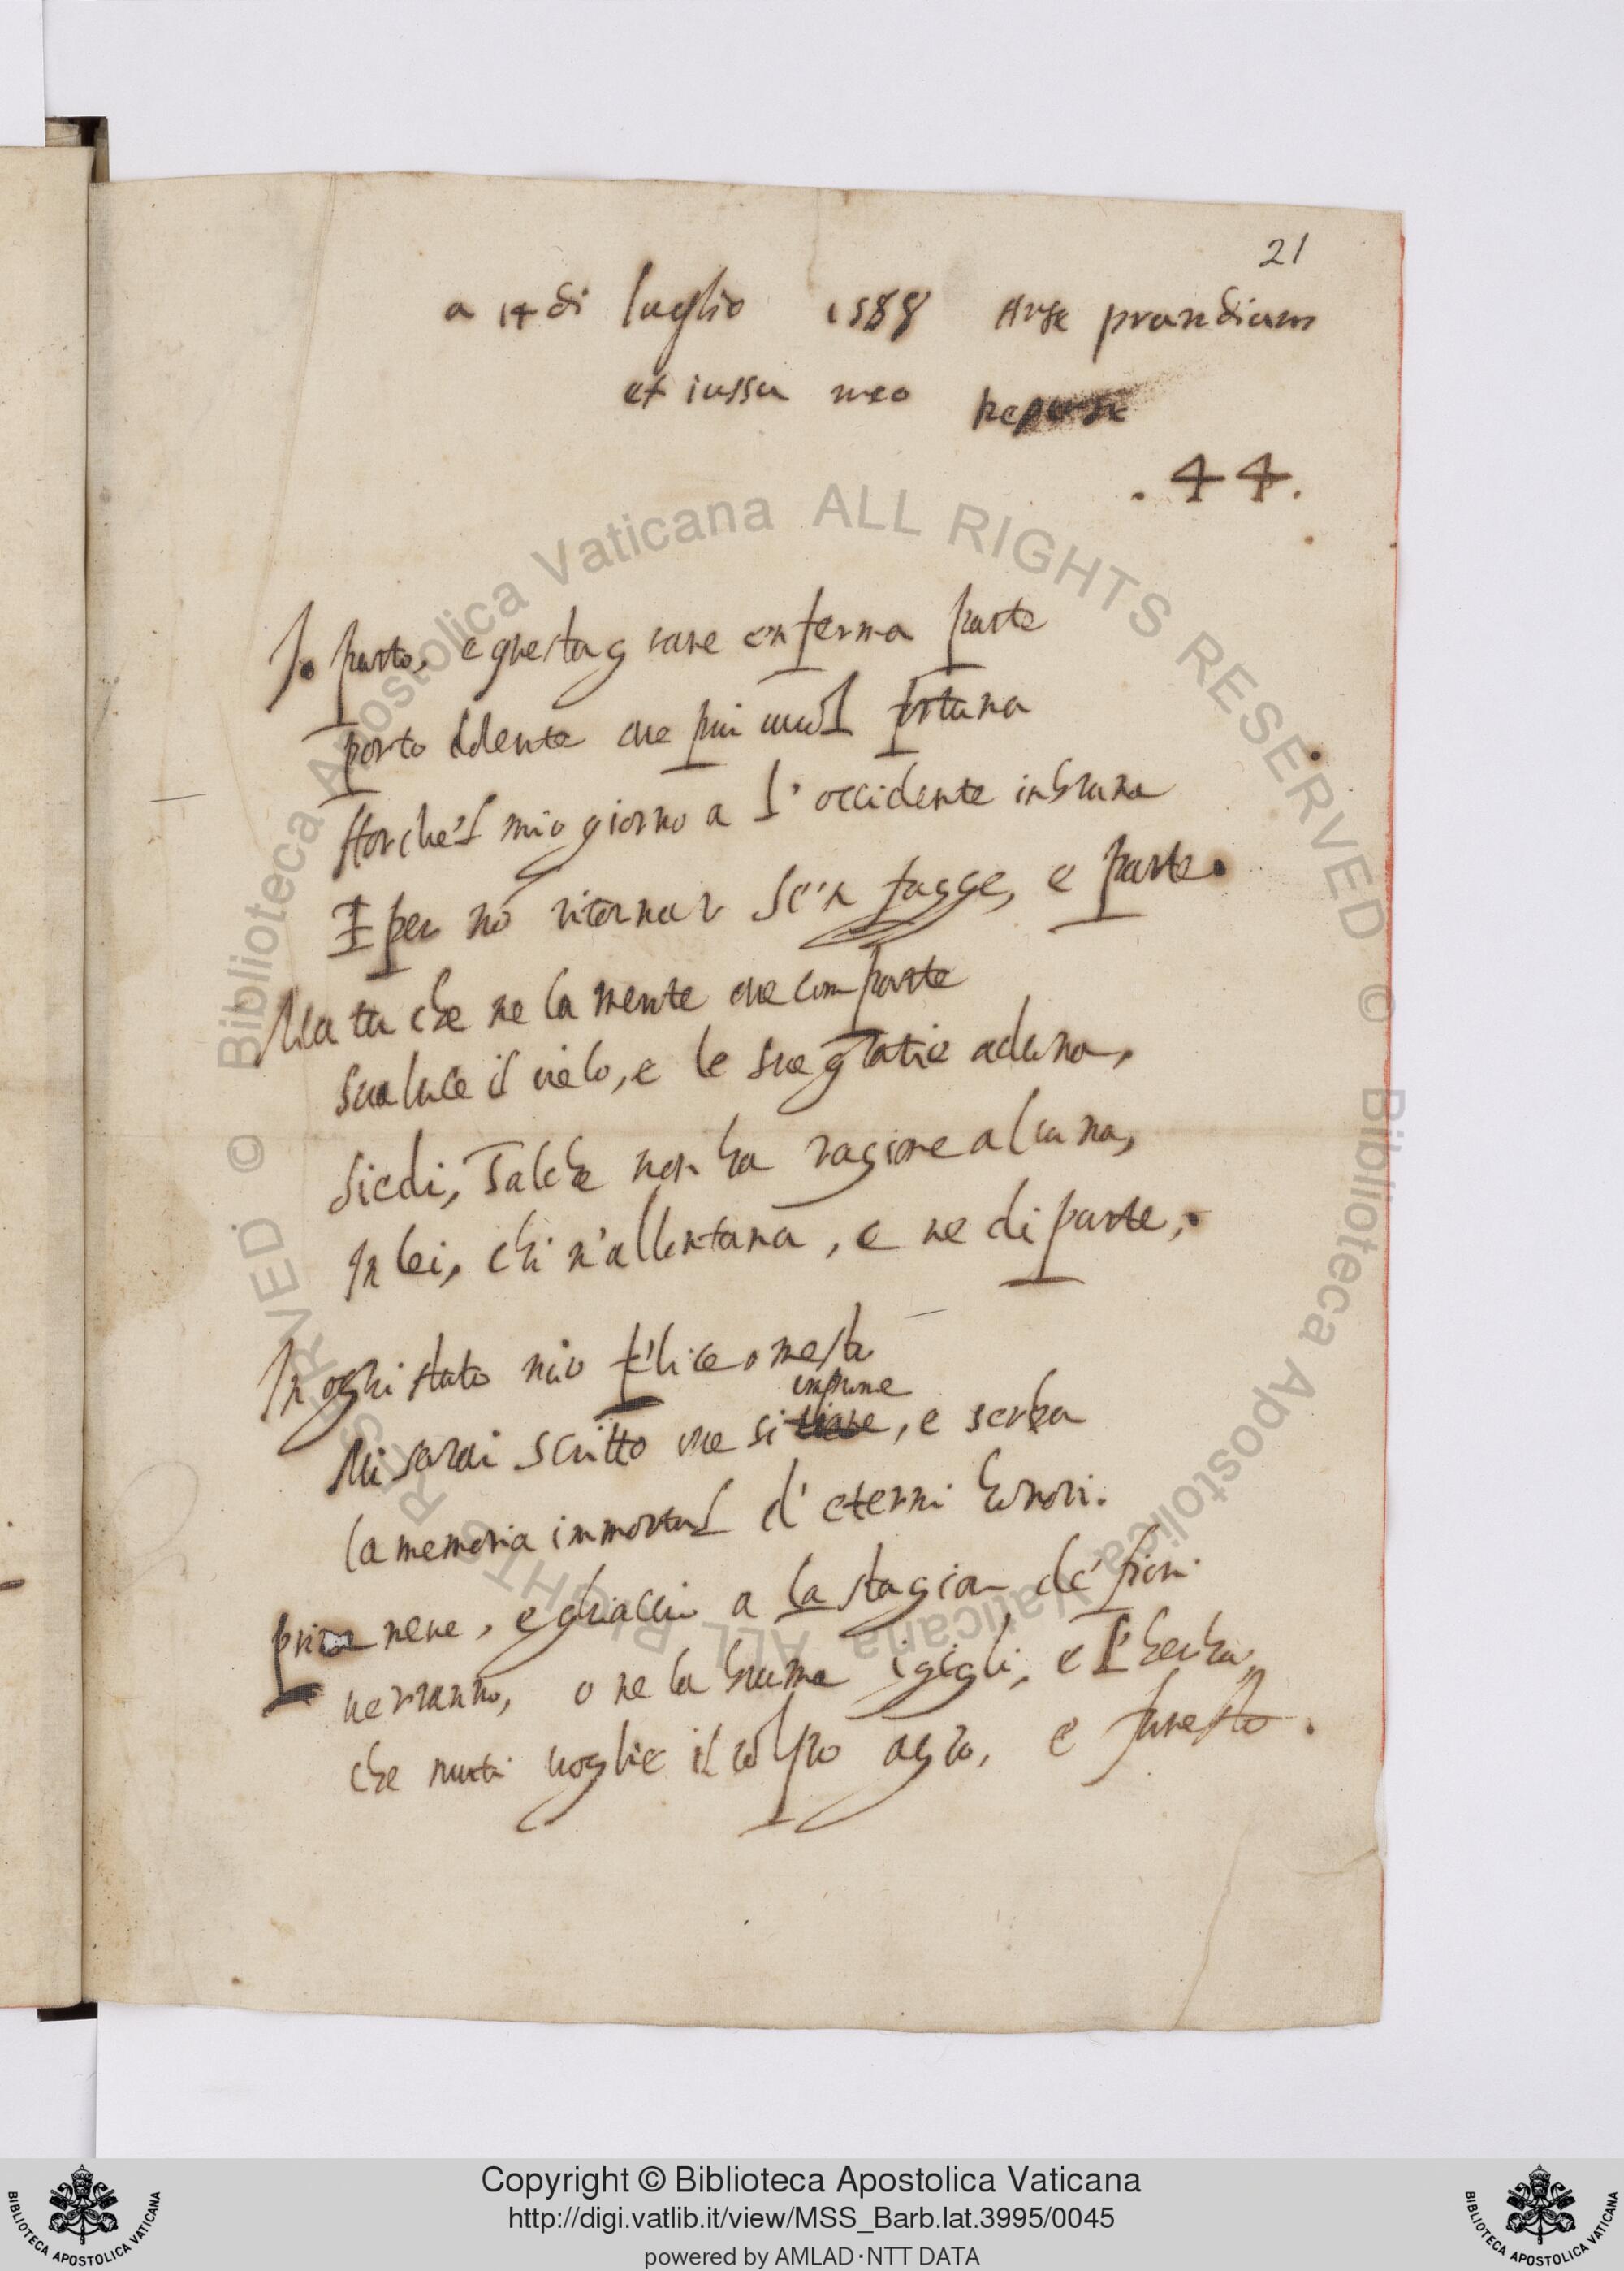 21
a 14 di luglio 1588 Ante prandium
et iussu meo
.44.
Io parto, e questa grave inferma parte
porto dolente ove più vuol fortuna
Hor che'l mio giorno a l'occidente inbruna
E per nō ritornar sē'n fugge, e parte.
Ma tu che ne la mente ove comparte
sua luce il cielo, e le sue gratie aduna,
siedi, Talche non ha ragione alcuna,
In lei, chi n'allontana, e ne diparte,
In ogni stato mio felice o mesto
imprime
Mi sarai scritto ove si, e serba
la memoria immortal d'eterni honori.
pria neve, e ghiacci a la stagion de' fiori
verranno, o ne la bruma i gigli, e l'herba,
che muti voglie il colpo agro, e funesto.
© Biblioteca Apostolica Vaticana ALL RIGHTS RESERVED © Biblioteca Apostolica Vaticana ALL RIGHTS RESERVED
Copyright © Biblioteca Apostolica Vaticana
http://digi.vatlib.it/view/MSS_Barb.lat.3995/0045
powered by AMLAD·NTT DATA
BIBLIOTECA APOSTOLICA VATICANA
BIBLIOTECA APOSTOLICA VATICANA